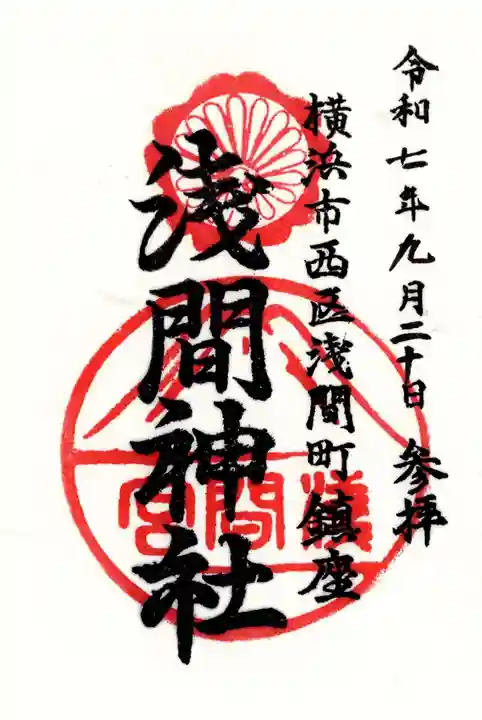 令和七年九月二十日 参拝
横浜市西区浅間町鎮座
浅間神社
浅間宮